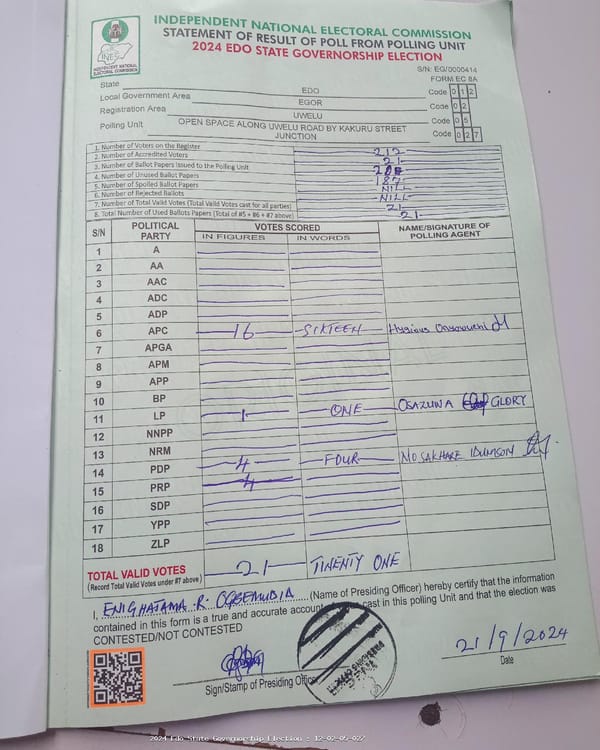 INDEPENDENT NATIONAL ELECTORAL COMMISSION
STATEMENT OF RESULT OF POLL FROM POLLING UNIT
2024 EDO STATE GOVERNORSHIP ELECTION
INEC
INDEPENDENT NATIONAL ELECTORAL COMMISSION
S/N: EG/0000414
FORM EC 8A
State EDO Code 012
Local Government Area EGOR Code 02
Registration Area UWELU Code 05
Polling Unit OPEN SPACE ALONG UWELU ROAD BY KAKURU STREET JUNCTION Code 027
1. Number of Voters on the Register 212
2. Number of Accredited Voters 21
3. Number of Ballot Papers Issued to the Polling Unit
4. Number of Unused Ballot Papers 187
5. Number of Spoiled Ballot Papers NILL
6. Number of Rejected Ballots NILL
7. Number of Total Valid Votes (Total Valid Votes cast for all parties) 21
8. Total Number of Used Ballots Papers (Total of #5 + #6 + #7 above) 21
S/N POLITICAL PARTY VOTES SCORED NAME/SIGNATURE OF POLLING AGENT
IN FIGURES IN WORDS
1 A
2 AA
3 AAC
4 ADC
5 ADP
6 APC 16 SIXTEEN Hyginus
7 APGA
8 APM
9 APP
10 BP
11 LP 1 ONE OSAZUWA GLORY
12 NNPP
13 NRM
14 PDP 4 FOUR NOSAKHARE IDUMSON
15 PRP
16 SDP
17 YPP
18 ZLP
TOTAL VALID VOTES 21 TWENTY ONE
(Record Total Valid Votes under #7 above)
I, ENIGHATAMA R. OGBEMUDIA (Name of Presiding Officer) hereby certify that the information
contained in this form is a true and accurate account cast in this polling Unit and that the election was
CONTESTED/NOT CONTESTED
21/9/2024
Sign/Stamp of Presiding Officer
Date
2024 Edo State Governorship Election : 12-02-05-027